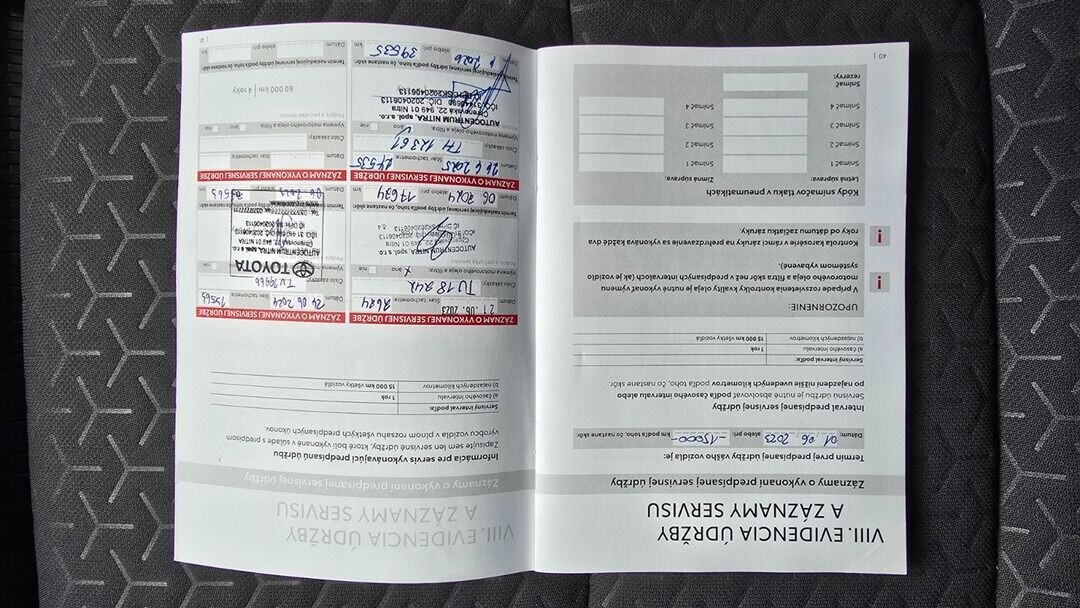 VIII. EVIDENCIA ÚDRŽBY
A ZÁZNAMY SERVISU
Záznamy o vykonaní predpísanej servisnej údržby
Termín prvej predpísanej údržby vášho vozidla je:
Dátum: 01. 06. 2023 alebo pri: -15000- km podľa toho, čo nastane skôr
Interval predpísanej servisnej údržby
Servisnú údržbu je nutné absolvovať podľa časového intervalu alebo
po najazdení nižšie uvedených kilometrov podľa toho, čo nastane skôr.
Servisný interval podľa:
a) časového intervalu 1 rok
b) najazdených kilometrov 15 000 km všetky vozidlá
UPOZORNENIE:
V prípade rozsvietenia kontrolky kvality oleja je nutné vykonať výmenu
motorového oleja a filtra skôr než v predpísaných intervaloch (ak je vozidlo
systémom vybavené).
Kontrola karosérie v rámci záruky na prehrdzavenie sa vykonáva každé dva
roky od dátumu začiatku záruky.
Kódy snímačov tlaku v pneumatikách
Letná súprava: Zimná súprava:
Snímač 1 Snímač 1
Snímač 2 Snímač 2
Snímač 3 Snímač 3
Snímač 4 Snímač 4
Snímač
rezervy:
40 |
VIII. EVIDENCIA ÚDRŽBY
A ZÁZNAMY SERVISU
Záznamy o vykonaní predpísanej servisnej údržby
Informácia pre servis vykonávajúci predpísanú údržbu
Zapisujte sem len servisné údržby, ktoré boli vykonané v súlade s predpisom
výrobcu vozidla v plnom rozsahu všetkých predpísaných úkonov.
Servisný interval podľa:
a) časového intervalu 1 rok
b) najazdených kilometrov 15 000 km všetky vozidlá
ZÁZNAM O VYKONANEJ SERVISNEJ ÚDRŽBE
Dátum: 21. 06. 2023 Stav tachometra: 2674
Číslo zákazky: TU 18
Výmena motorového oleja a filtra: áno x nie
Podpis a pečiatka servisu
AUTOCENTRUM NITRA, spol. s r.o.
Termín nasledujúcej servisnej údržby podľa toho, čo nastane skôr:
Dátum: 06 2024 alebo pri: 17674 km
ZÁZNAM O VYKONANEJ SERVISNEJ ÚDRŽBE
Dátum: 24 06 2024 Stav tachometra: 15563
Číslo zákazky:
Výmena
TOYOTA
AUTOCENTRUM NITRA, spol. s r.o.
Dátum: alebo pri: km
ZÁZNAM O VYKONANEJ SERVISNEJ ÚDRŽBE
Dátum: 26 6 2025 Stav tachometra: 24535
Číslo zákazky: TM 12361
Výmena motorového oleja a filtra: áno nie
Podpis a pečiatka servisu
AUTOCENTRUM NITRA, spol. s r.o.
22, 949 01 Nitra
DIČ: 2020406113
SK2020406113
Termín nasledujúcej servisnej údržby podľa toho, čo nastane skôr:
Dátum: 6 2026 alebo pri: 39535 km
ZÁZNAM O VYKONANEJ SERVISNEJ ÚDRŽBE
Dátum: Stav tachometra:
Číslo zákazky:
Výmena motorového oleja a filtra: áno nie
Podpis a pečiatka servisu
60 000 km | 4 roky
Termín nasledujúcej servisnej údržby podľa toho, čo nastane skôr:
Dátum: alebo pri: km
| 41